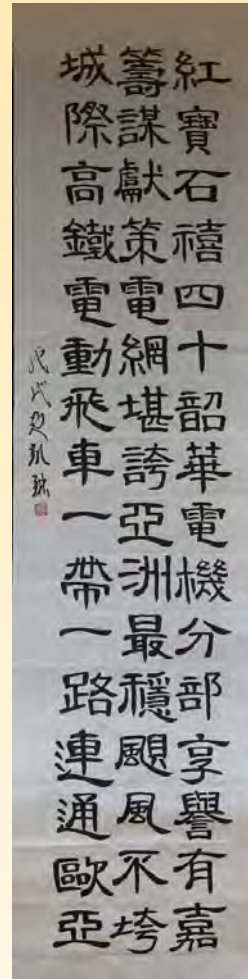 紅寶石禧四十韶華電機分部享譽有嘉
籌謀獻策電網堪誇亞洲最穩颶風不垮
城際高鐵電動飛車一帶一路連通歐亞